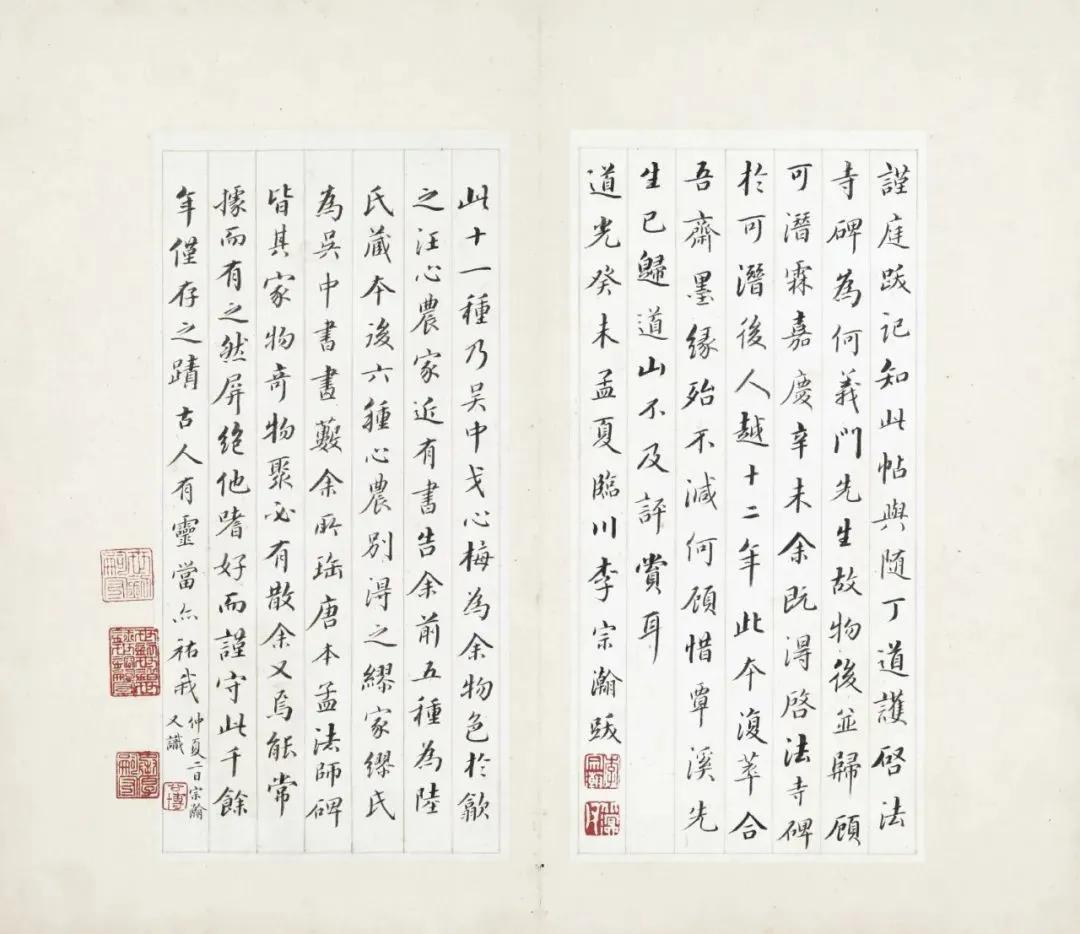 謹庭跋記知此帖與隨丁道護啓法
寺碑為何義門先生故物後並歸顧
可潛霖嘉慶辛未余既得啓法寺碑
於可潛後人越十二年此本復萃合
吾齋墨緣殆不減何顧惜覃溪先
生已歸道山不及評賞耳
道光癸未孟夏臨川李宗瀚跋
此十一種乃吳中戈心梅為余物色於歙
之汪心農家近有書告余前五種為陸
氏藏本後六種心農別得之繆家繆氏
為吳中書畫藪余所臨唐本孟法師碑
皆其家物奇物聚必有散余又焉能常
據而有之然屏絕他嗜好而謹守此千餘
年僅存之蹟古人有靈當亦祐我
仲夏二日宗瀚
又識